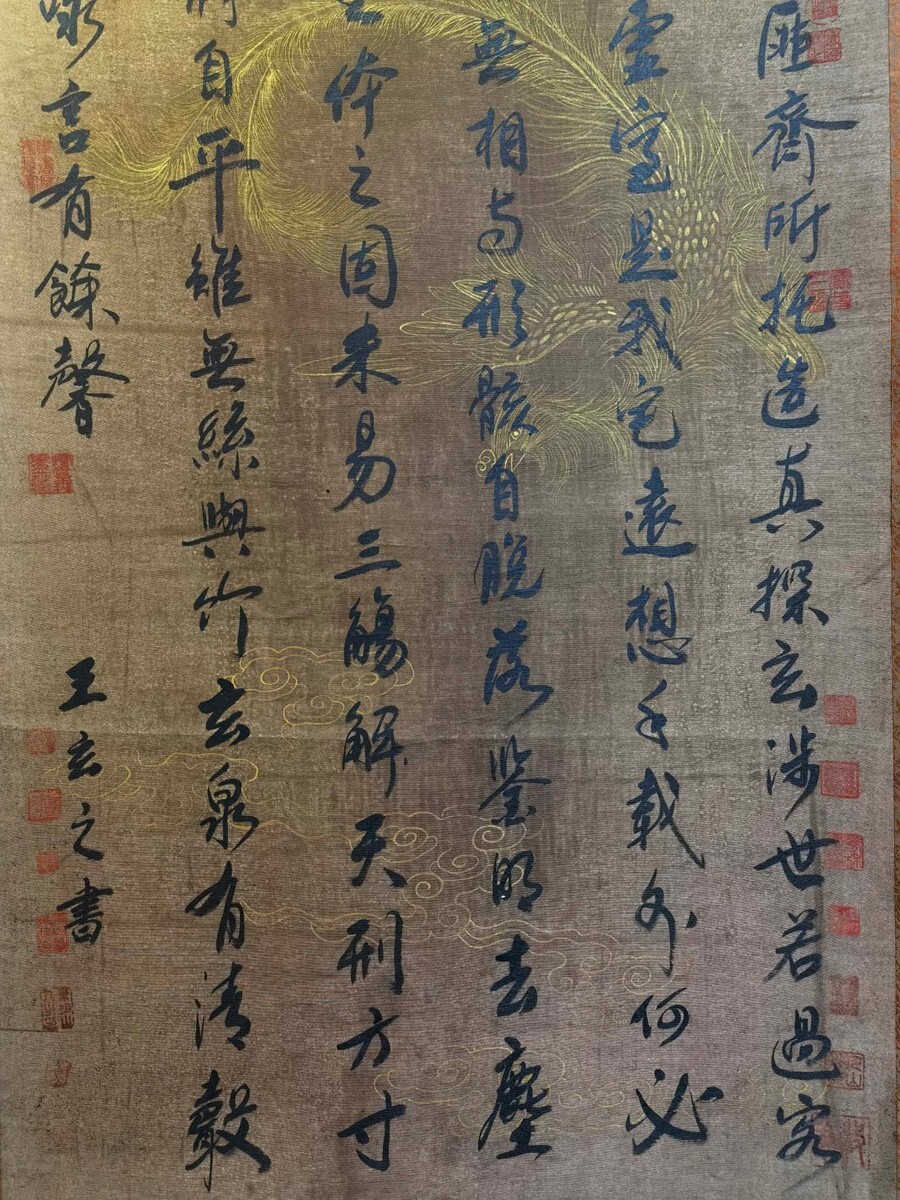 匪齊所托造真探玄涉世若過客
虛室是我宅遠想千載外何必
無相與形骸自脫落鑒明去塵
体之固未易三觴解天刑方寸
將自平雖無絲與竹玄泉有清聲
詠言有餘馨
王玄之書